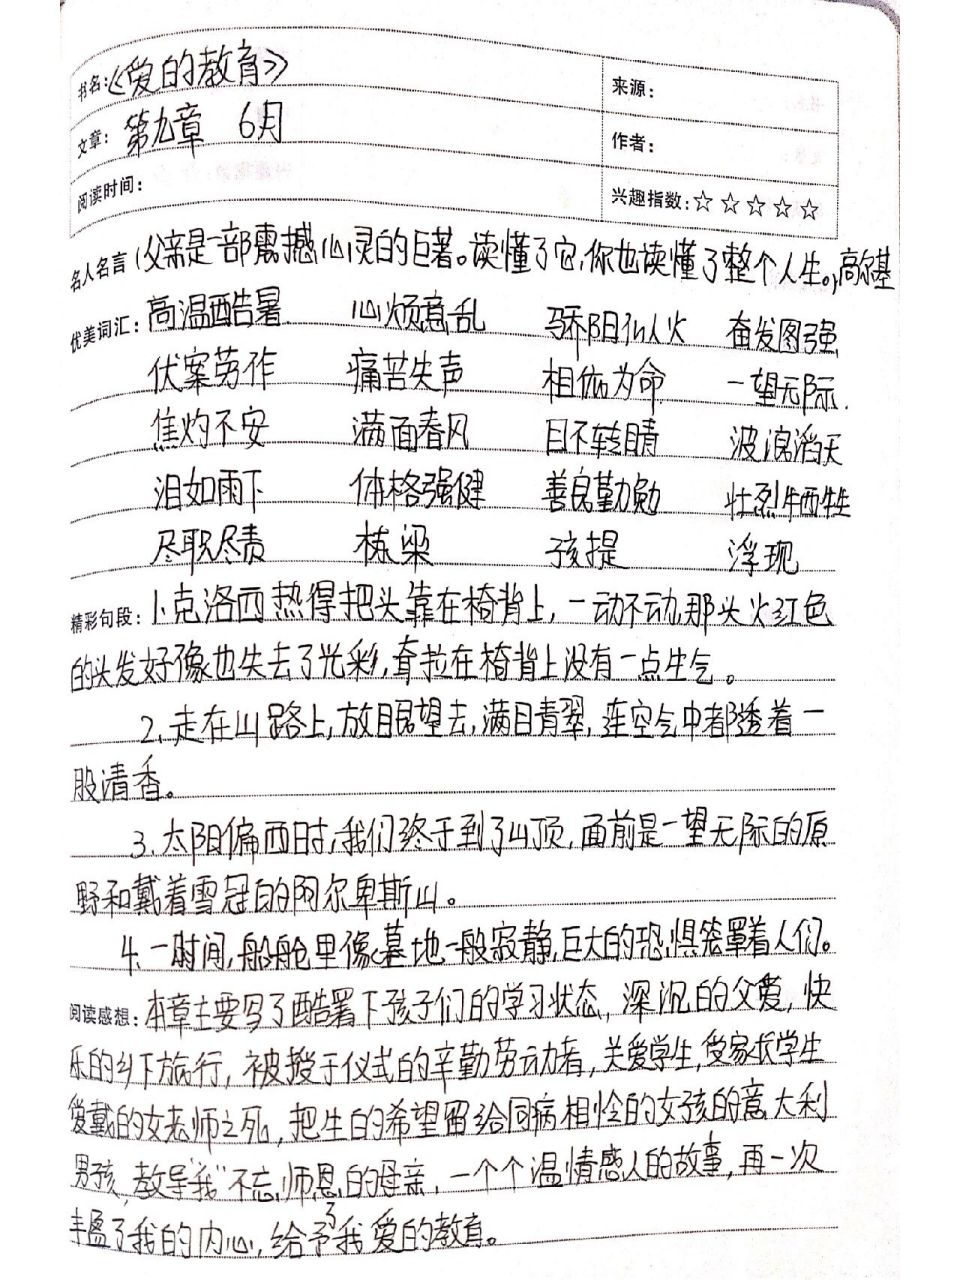 书名:《爱的教育》
来源:
文章: 第九章 6月
作者:
阅读时间:
兴趣指数:☆☆☆☆☆
名人名言(父亲是一部震撼心灵的巨著。读懂了它,你也读懂了整个人生。,高尔基
优美词汇: 高温酷暑 心烦意乱 骄阳似火 奋发图强
伏案劳作 痛苦失声 相依为命 一望无际.
焦灼不安 满面春风 目不转睛 波浪滔天
泪如雨下 体格强健 善良勤勉 壮烈牺牲
尽职尽责 栋梁 孩提 浮现
精彩句段: 卜克洛西热得把头靠在椅背上,一动不动,那头火红色
的头发好像也失去了光彩,耷拉在椅背上没有一点生气。
2.走在山路上,放眼望去,满目青翠,连空气中都透着一
股清香。
3.太阳偏西时,我们终于到了山顶,面前是一望无际的原
野和戴着雪冠的阿尔卑斯山。
4.一时间,船舱里像墓地一般寂静,巨大的恐惧笼罩着人们。
阅读感想: 本章主要写了酷署下孩子们的学习状态,深沉的父爱,快
乐的乡下旅行,被授予仪式的辛勤劳动者,关爱学生,受家长学生
爱戴的女老师之死,把生的希望留给同病相怜的女孩的意大利
男孩,教导"我"不忘师恩的母亲,一个个温情感人的故事,再一次
丰盈了我的内心,给予了我爱的教育。